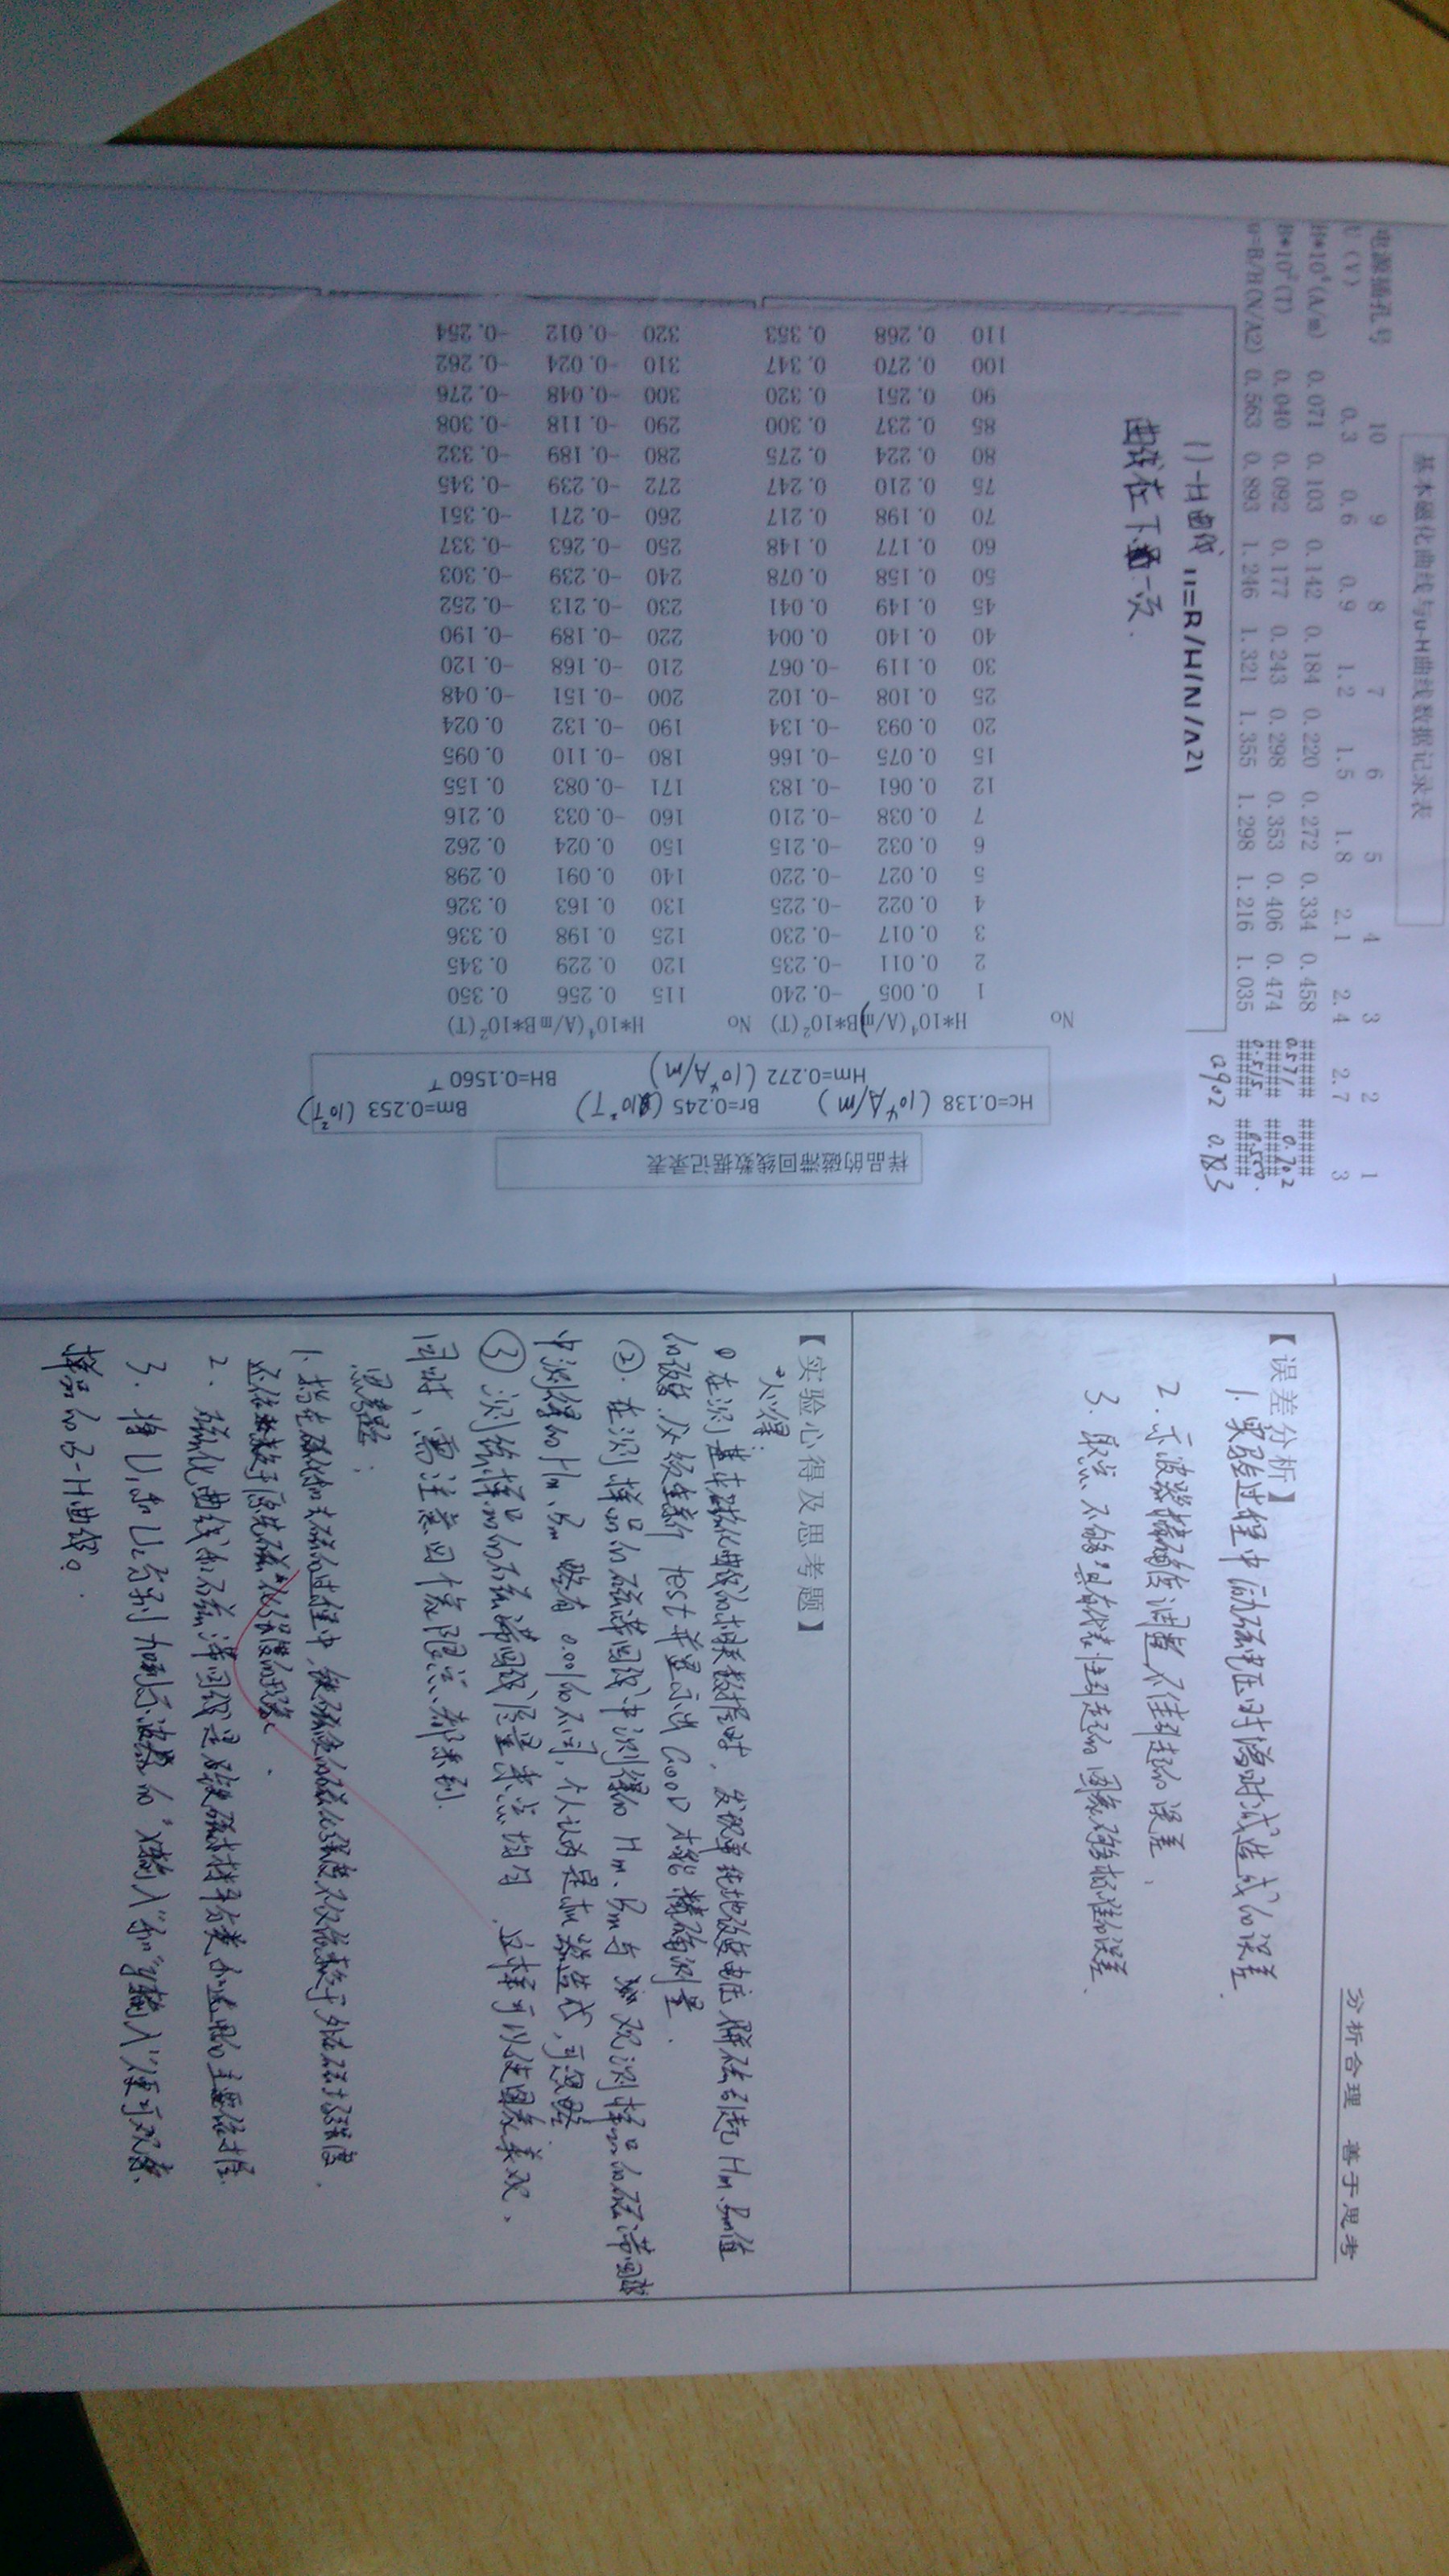 基本磁化曲线与u-H曲线数据记录表
电源插孔号 10 9 8 7 6 5 4 3 2 1
U (V) 0.3 0.6 0.9 1.2 1.5 1.8 2.1 2.4 2.7 3
H*10⁴(A/m) 0.071 0.103 0.142 0.184 0.220 0.272 0.334 0.458 ##### #####
0.571 0.702
B*10²(T) 0.040 0.092 0.177 0.243 0.298 0.353 0.406 0.474 ##### #####
0.515 0.550
u=B/H(N/A2) 0.563 0.893 1.246 1.321 1.355 1.298 1.216 1.035 ##### #####
0.902 0.783
u-H曲线 u=B/H(N/A2)
曲线在下一页.
样品的磁滞回线数据记录表
Hc=0.138 (10⁴A/m) Br=0.245 (10²T) Bm=0.253 (10²T)
Hm=0.272 (10⁴A/m) BH=0.1560 T
No H*10⁴(A/m) B*10²(T) No H*10⁴(A/m B*10²(T)
1 0.005 -0.240 115 0.256 0.350
2 0.011 -0.235 120 0.229 0.345
3 0.017 -0.230 125 0.198 0.336
4 0.022 -0.225 130 0.163 0.326
5 0.027 -0.220 140 0.091 0.298
6 0.032 -0.215 150 0.024 0.262
7 0.038 -0.210 160 -0.033 0.216
12 0.061 -0.183 171 -0.083 0.155
15 0.075 -0.166 180 -0.110 0.095
20 0.093 -0.134 190 -0.132 0.024
25 0.108 -0.102 200 -0.151 -0.048
30 0.119 -0.067 210 -0.168 -0.120
40 0.140 0.004 220 -0.189 -0.190
45 0.149 0.041 230 -0.213 -0.252
50 0.158 0.078 240 -0.239 -0.303
60 0.177 0.148 250 -0.263 -0.337
70 0.198 0.217 260 -0.271 -0.351
75 0.210 0.247 272 -0.239 -0.345
80 0.224 0.275 280 -0.189 -0.332
85 0.237 0.300 290 -0.118 -0.308
90 0.251 0.320 300 -0.048 -0.276
100 0.270 0.347 310 -0.024 -0.262
110 0.268 0.353 320 -0.012 -0.254
分析合理 善于思考
【误差分析】
1. 实验过程中励磁电压时增时减造成的误差.
2. 示波器精确度调整不佳引起的误差.
3. 取点不够具有代表性引起的图象不够标准的误差.
【实验心得及思考题】
心得:
① 在测基本磁化曲线的相关数据时,发现单纯地改变电压 引起Hm、Bm值
的改变.必须重新test并显示出GOOD才能精确测量.
②. 在测样品的磁滞回线中测得的Hm、Bm与观测样品的磁滞回线
中测得的Hm、Bm略有0.001的不同,个人认为是机器造成,可忽略.
③ 测绘样品的磁滞回线尽量采点均匀.这样可以使图象美观.
同时,需注意四个象限点都采到.
思考题:
1. 指在磁化和去磁的过程中,铁磁质的磁化强度不仅依赖于外在磁场强度.
还依赖于原先磁化强度的现象.
2. 磁化曲线和磁滞回线是铁磁材料分类和选用的主要依据.
3. 将U₁和U₂分别加到示波器的“x输入”和“y输入”便可观察
样品的B-H曲线。